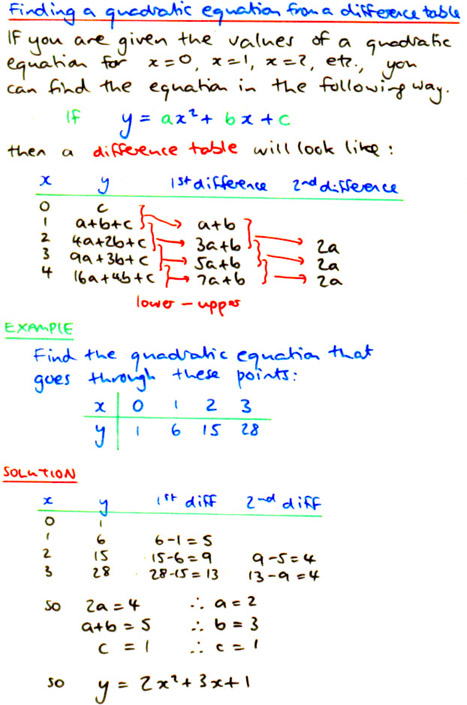 Finding a quadratic equation from a difference table
IF you are given the values of a quadratic
equation for x=0, x=1, x=2, etc., you
can find the equation in the following way.
If y = ax² + bx + c
then a difference table will look like:
x y 1st difference 2nd difference
0 c
1 a+b+c a+b
2 4a+2b+c 3a+b 2a
3 9a+3b+c 5a+b 2a
4 16a+4b+c 7a+b 2a
lower - upper
EXAMPLE
Find the quadratic equation that
goes through these points:
x 0 1 2 3
y 1 6 15 28
SOLUTION
x y 1st diff 2nd diff
0 1
1 6 6-1=5
2 15 15-6=9 9-5=4
3 28 28-15=13 13-9=4
so 2a=4 ∴ a=2
a+b=5 ∴ b=3
c=1 ∴ c=1
so y = 2x²+3x+1